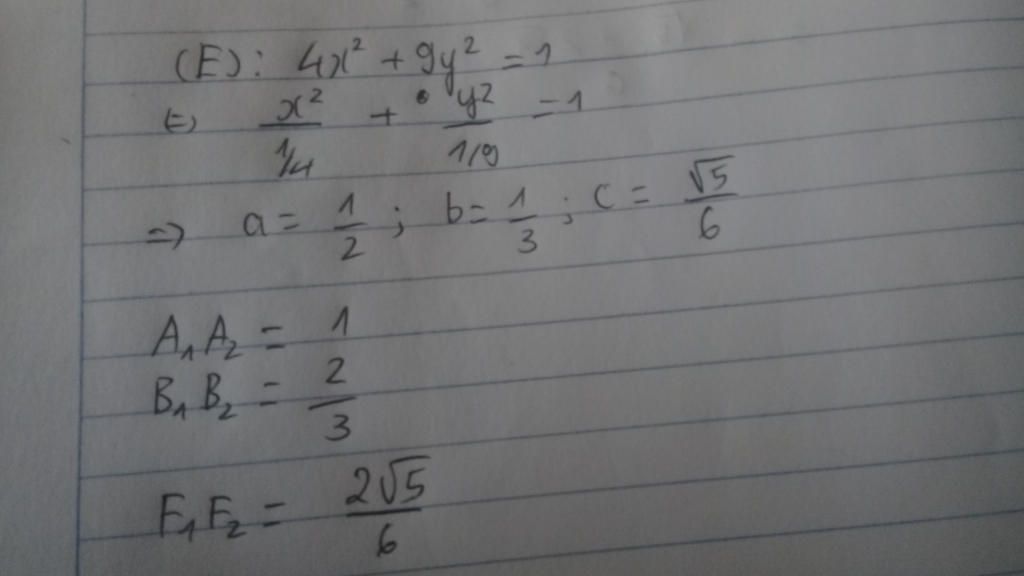 (E): 4x² + 9y² = 1
⇔ x²/(1/4) + y²/(1/9) = 1
⇒ a = 1/2 ; b = 1/3 ; c = √5/6
A₁A₂ = 1
B₁B₂ = 2/3
F₁F₂ = 2√5/6